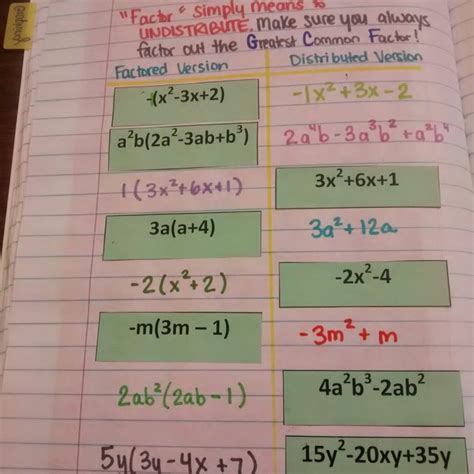 "Factor" simply means to
UNDISTRIBUTE. Make sure you always
factor out the Greatest Common Factor!
Factored Version Distributed Version
-(x²-3x+2) -1x²+3x-2
a²b(2a²-3ab+b³) 2a⁴b-3a³b²+a²b⁴
1(3x²+6x+1) 3x²+6x+1
3a(a+4) 3a²+12a
-2(x²+2) -2x²-4
-m(3m – 1) -3m²+m
2ab²(2ab-1) 4a²b³-2ab²
5y(3y-4x+7) 15y²-20xy+35y